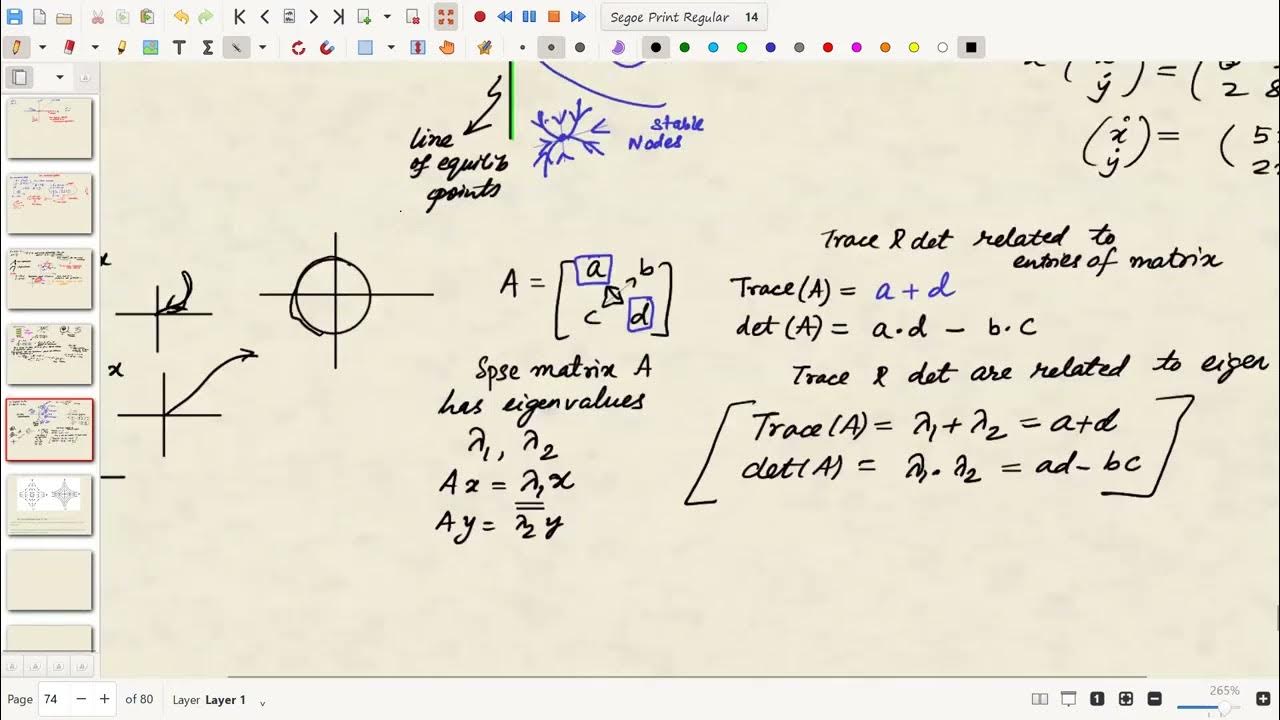 Segoe Print Regular 14
line
of equilib
points
stable
Nodes
x
x
A = [ a b
c d ]
Spse matrix A
has eigenvalues
λ₁, λ₂
Ax = λ₁x
Ay = λ₂y
Trace & det related to
entries of matrix
Trace(A) = a + d
det(A) = a·d − b·c
Trace & det are related to eigen
Trace(A) = λ₁ + λ₂ = a+d
det(A) = λ₁·λ₂ = ad − bc
(ẋ
ẏ) = (
2 8
(ẋ
ẏ) = ( 5
2
Page 74 − + of 80 Layer Layer 1
265%